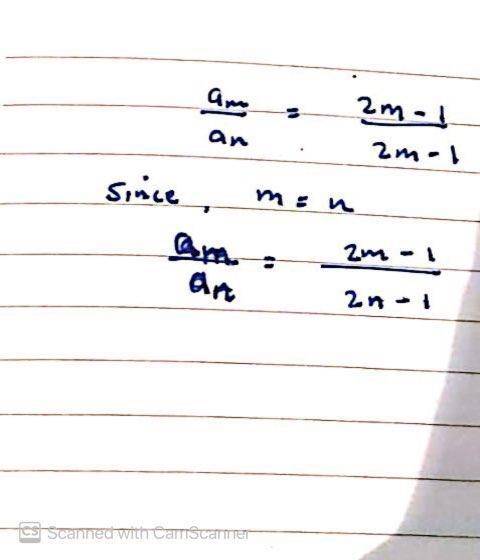 am/an = 2m-1/2m-1
Since, m = n
am/an = 2m-1/2n-1
CS Scanned with CamScanner